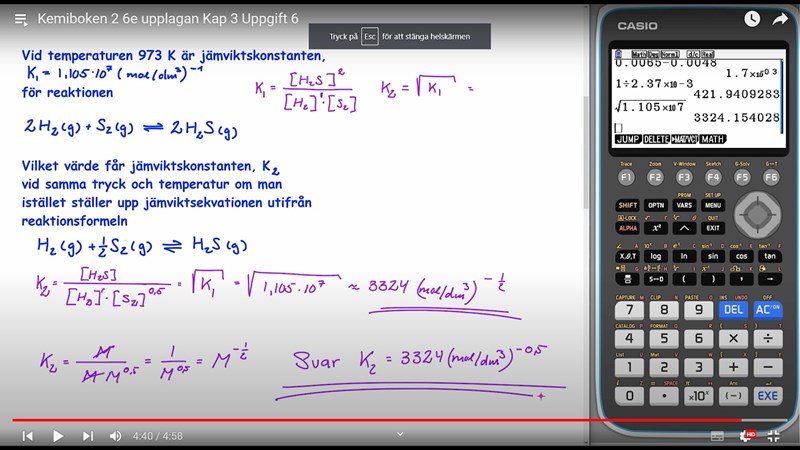 Kemiboken 2 6e upplagan Kap 3 Uppgift 6
Tryck på Esc för att stänga helskärmen
Vid temperaturen 973 K är jämviktskonstanten,
K₁ = 1,105·10⁷ (mol/dm³)⁻¹
för reaktionen
2H₂(g) + S₂(g) ⇌ 2H₂S(g)
K₁ = [H₂S]² / [H₂]²·[S₂] K₂ = √K₁ =
Vilket värde får jämviktskonstanten, K₂
vid samma tryck och temperatur om man
istället ställer upp jämviktsekvationen utifrån
reaktionsformeln
H₂(g) + ½S₂(g) ⇌ H₂S(g)
K₂ = [H₂S] / [H₂]¹·[S₂]^0,5 = √K₁ = √1,105·10⁷ ≈ 3324 (mol/dm³)^-½
K₂ = M / M·M^0,5 = 1 / M^0,5 = M^-½
Svar K₂ = 3324 (mol/dm³)^-0,5
4:40 / 4:58
HD
CASIO
Math Deg Norm1 d/c Real
0.0065-0.0048
1.7×10-03
1÷2.37×10-3
421.9409283
√1.105×107
3324.154028
JUMP DELETE ►MAT/VCT MATH
Trace Zoom V-Window Sketch G-Solv G↔T
F1 F2 F3 F4 F5 F6
PRGM SET UP
SHIFT OPTN VARS MENU
A-LOCK QUIT
ALPHA x² ^ EXIT
X,θ,T log ln sin cos tan
S↔D ( ) , →
CAPTURE CLIP PASTE INS UNDO OFF
7 8 9 DEL AC/ON
CATALOG FORMAT
4 5 6 × ÷
List Mat
1 2 3 + −
0 . ×10ˣ (−) EXE